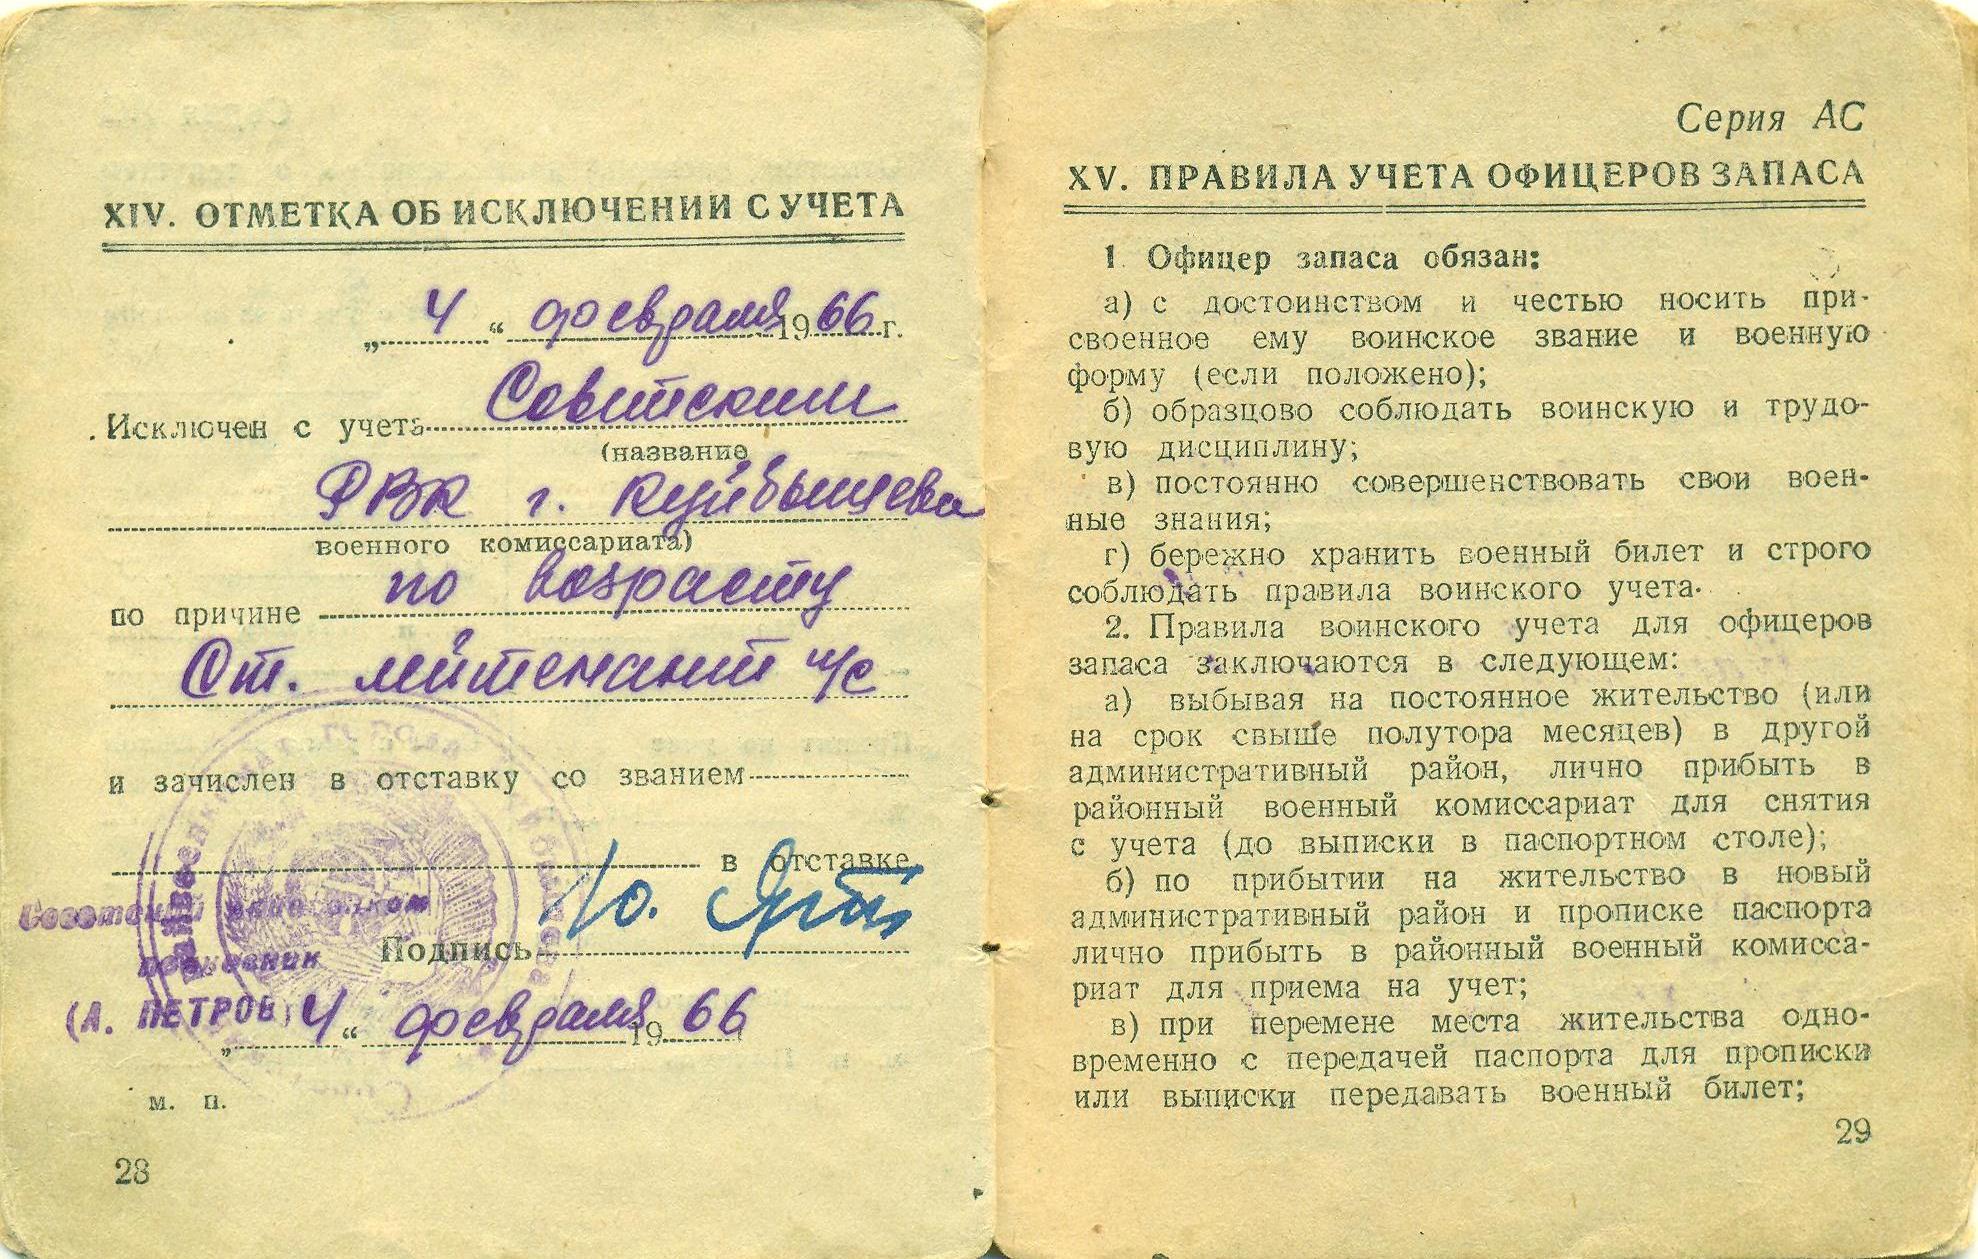 XIV. ОТМЕТКА ОБ ИСКЛЮЧЕНИИ С УЧЕТА
„ 4 “ февраля 1966 г.
Исключен с учета Советским
(название
РВК г. Куйбышева
военного комиссариата)
по причине по возрасту
Ст. лейтенант и/с
и зачислен в отставку со званием
в отставке
Подпись
полковник
(А. ПЕТРОВ)
„ 4 “ февраля 1966
м. п.
28
Серия АС
XV. ПРАВИЛА УЧЕТА ОФИЦЕРОВ ЗАПАСА
1 Офицер запаса обязан:
а) с достоинством и честью носить при-
своенное ему воинское звание и военную
форму (если положено);
б) образцово соблюдать воинскую и трудо-
вую дисциплину;
в) постоянно совершенствовать свои воен-
ные знания;
г) бережно хранить военный билет и строго
соблюдать правила воинского учета.
2. Правила воинского учета для офицеров
запаса заключаются в следующем:
а) выбывая на постоянное жительство (или
на срок свыше полутора месяцев) в другой
административный район, лично прибыть в
районный военный комиссариат для снятия
с учета (до выписки в паспортном столе);
б) по прибытии на жительство в новый
административный район и прописке паспорта
лично прибыть в районный военный комисса-
риат для приема на учет;
в) при перемене места жительства одно-
временно с передачей паспорта для прописки
или выписки передавать военный билет;
29